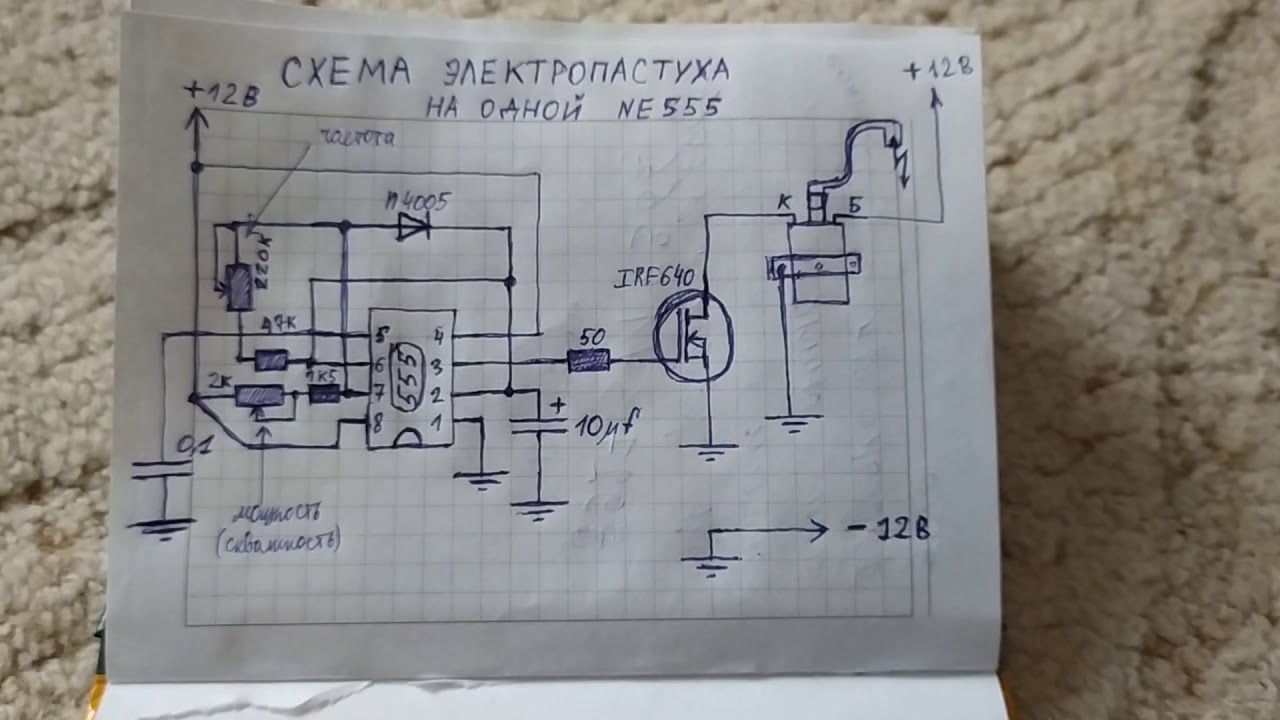 СХЕМА ЭЛЕКТРОПАСТУХА
НА ОДНОЙ NE555
+12В
+12В
частота
n4005
220К
К
Б
IRF640
47К
5
4
50
6
3
2К
1К5
555
7
2
8
1
+
10µf
0,1
мощность
(скважность)
-12В